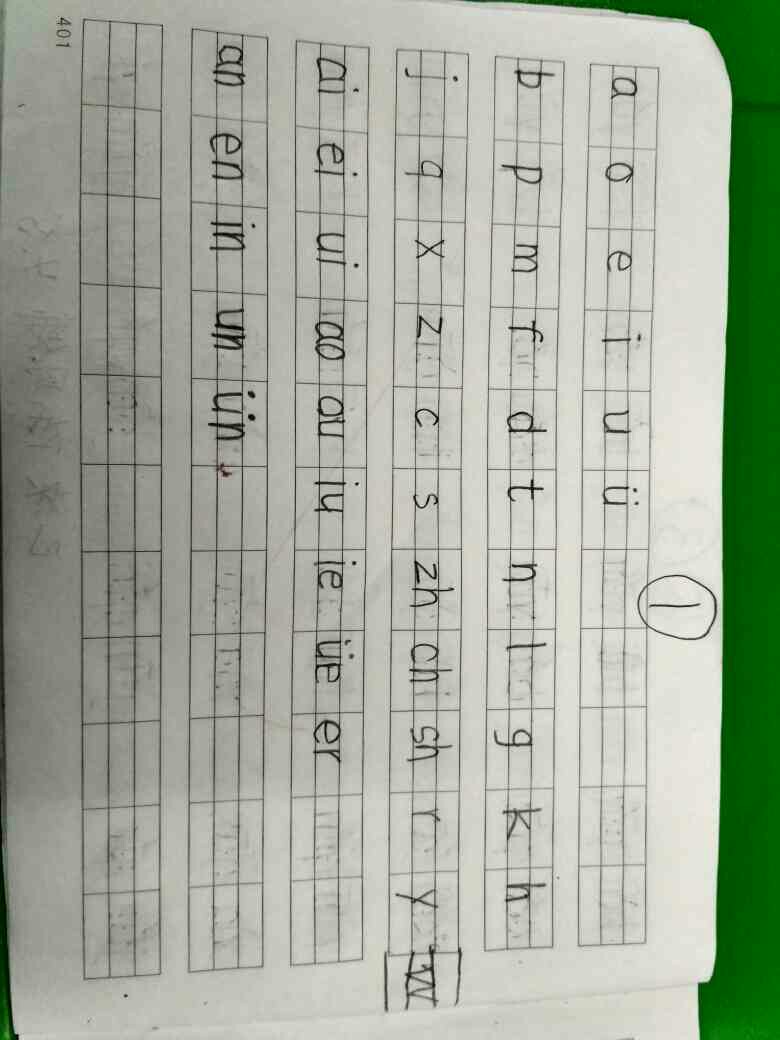 ①
a o e i u ü
b p m f d t n l g k h
j q x z c s zh ch sh r y w
ai ei ui ao ou iu ie üe er
an en in un ün
401